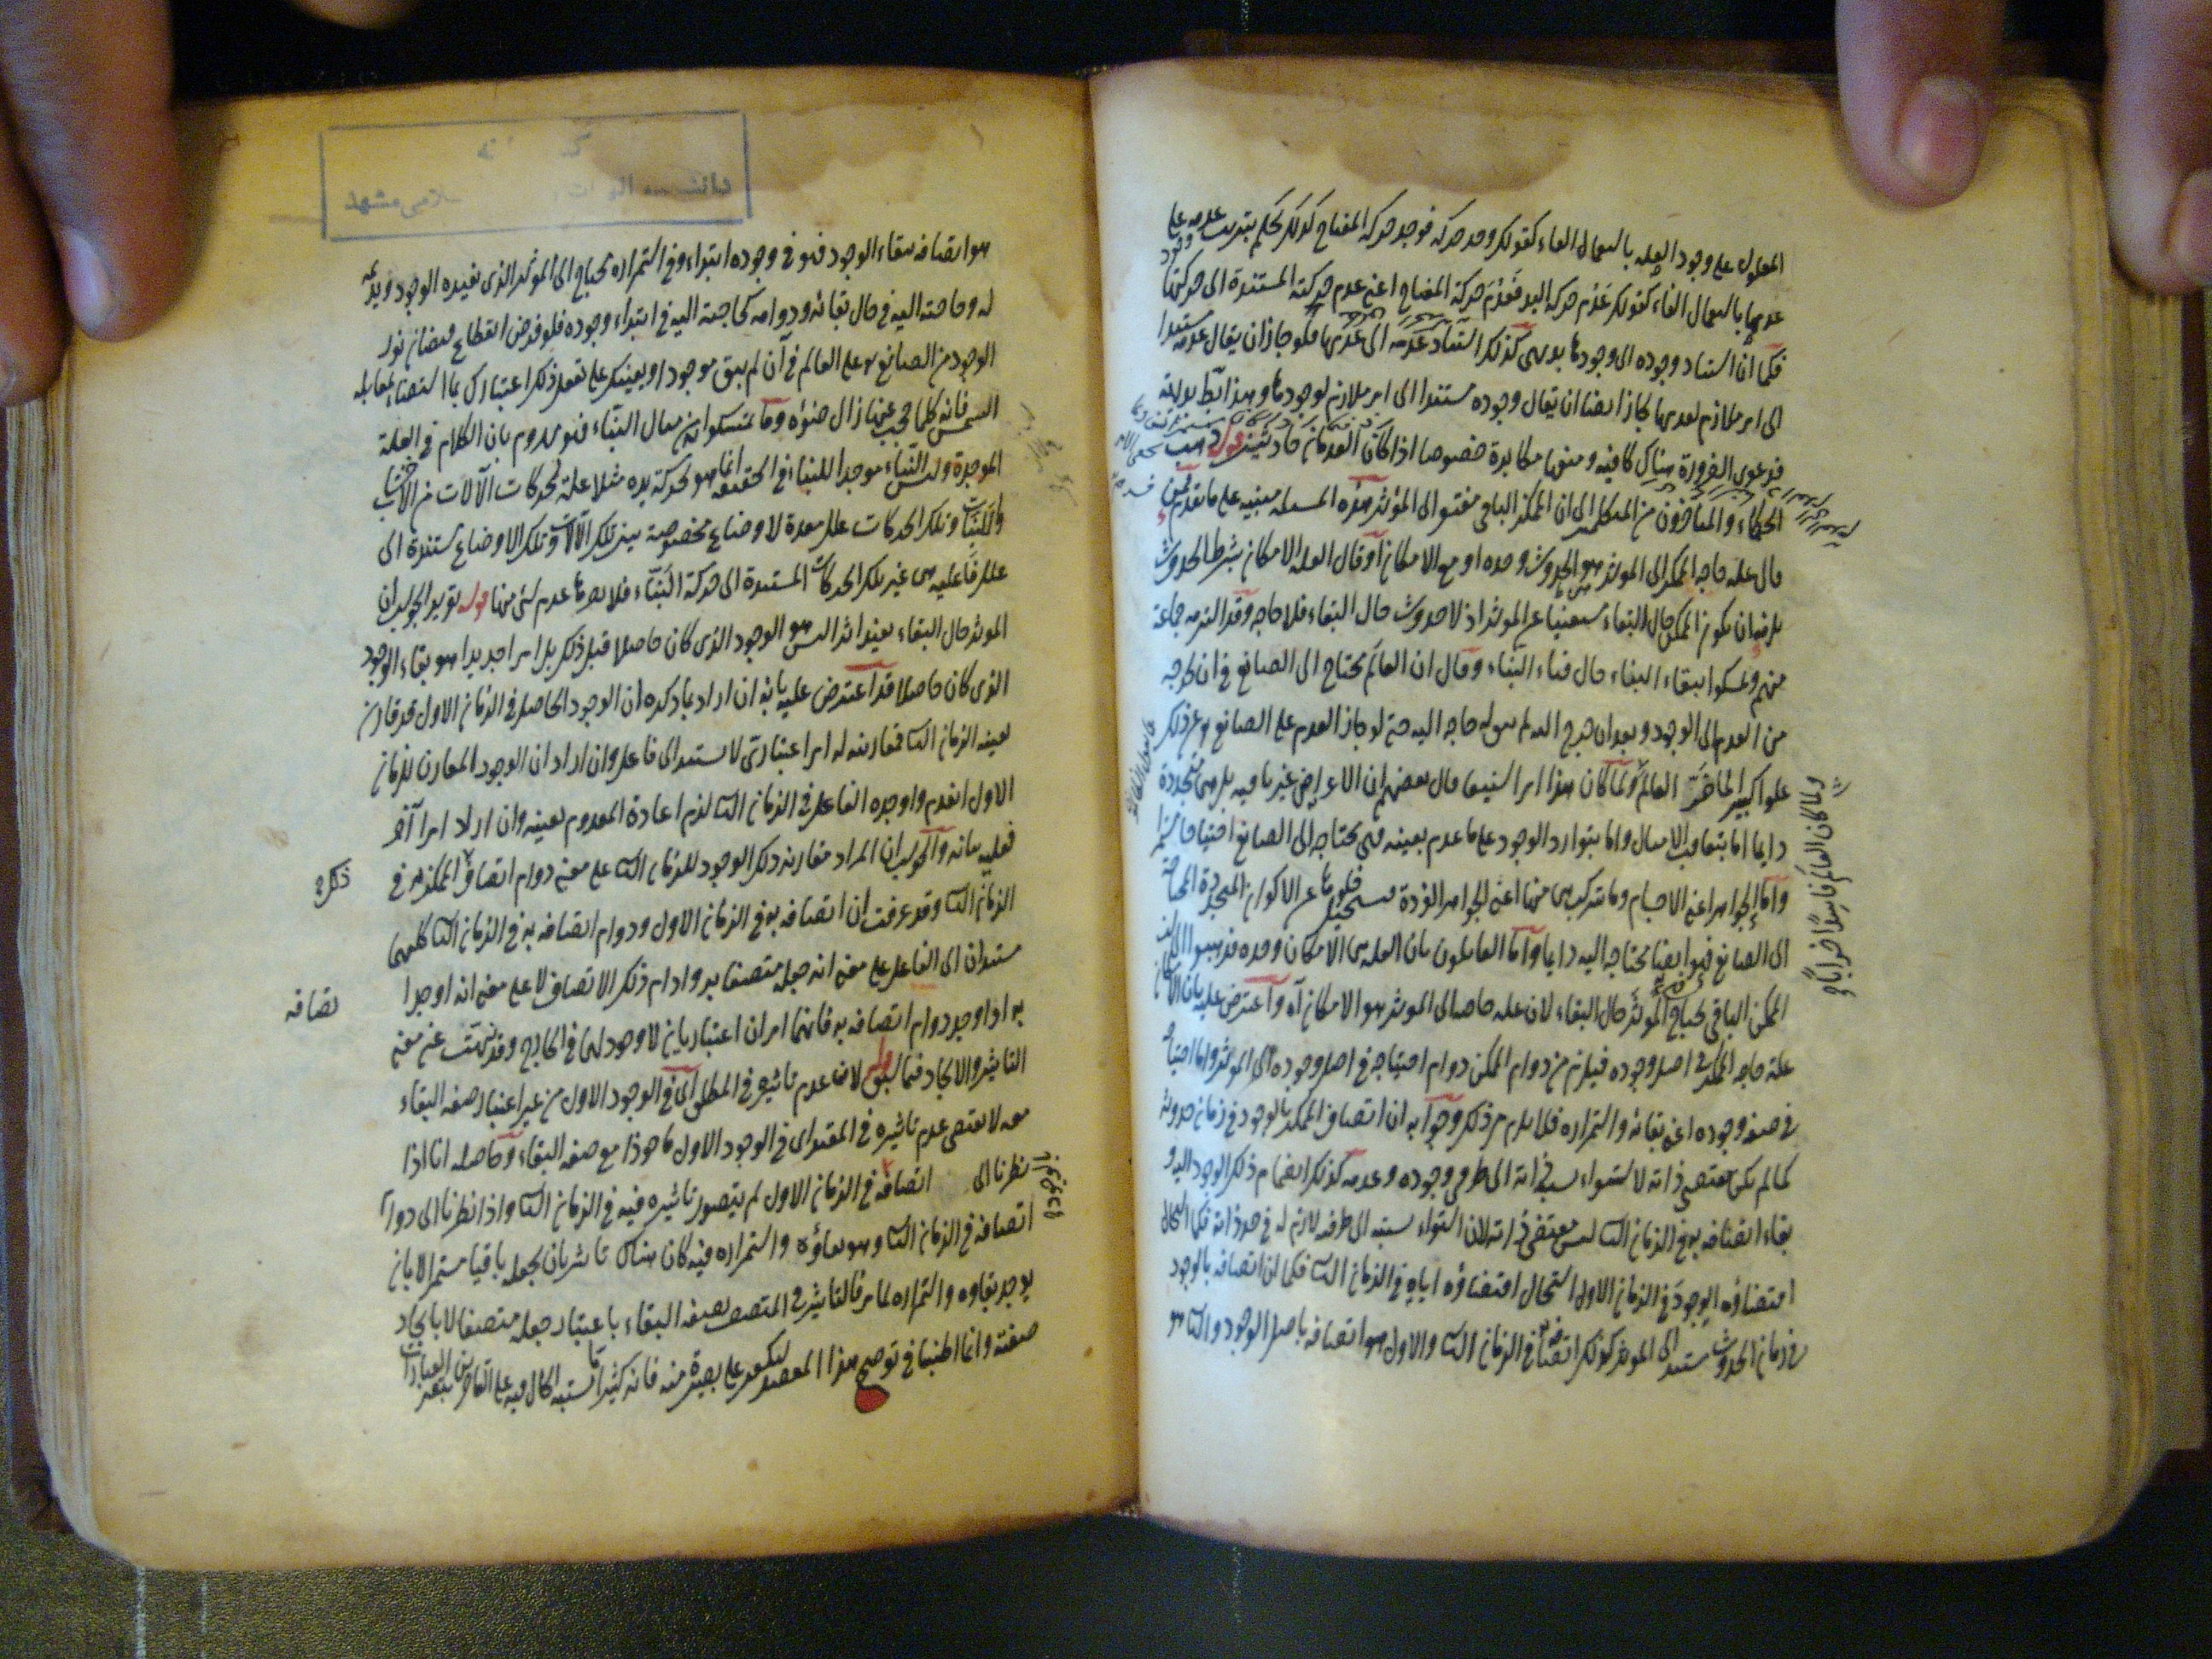 المعلول على وجود العلة باستعمال الفاء كقولك وجد حركة فوجد حركة المفتاح كذلك نحكم بترتب عدمه على
عدمها باستعمال الفاء كقولك عدم حركة اليد فعدم حركة المفتاح اعنى عدم حركته المستندة الى حركتها
فكما ان استناد وجوده الى وجودها بديهى كذلك استناد عدمه الى عدمها فلو جاز ان يقال عدمه مستندا
الى امر ملازم لعدمها لجاز ايضا ان يقال وجوده مستندا الى امر ملازم لوجودها وهذا بط بديهة
فدعوى الضرورة هناك كافية ومنعها مكابرة خصوصا اذا كان العدمان حادثين قوله ذهب
الحكماء والمتأخرون من المتكلمين الى ان الممكن الباقى مفتقر الى المؤثر هذه المسئلة مبنية على ما تقدم فمن
قال علة حاجة الممكن الى المؤثر هو الحدوث وحده او مع الامكان او قال العلة الامكان بشرط الحدوث
يلزمه ان يكون الممكن حال البقاء مستغنيا عن المؤثر اذ لا حدوث حال البقاء فلا حاجة وقد التزمه جماعة
منهم وتمسكوا ببقاء البناء حال فناء البناء وقال ان العالم يحتاج الى الصانع فى ان يخرجه
من العدم الى الوجود وبعد ان خرج اليه لم يبق له حاجة اليه حتى لو جاز العدم على الصانع تع عن ذلك
علوا كبيرا لما ضر العالم ولما كان هذا امرا شنيعا قال بعضهم ان الاعراض غير باقية بل هى متجددة
دايما اما بتعاقب الامثال واما بتوارد الوجود على ما عدم بعينه فهى محتاجة الى الصانع احتياجا مستمرا
واما الجواهر اعنى الاجسام وما تتركب هى منها اعنى الجواهر الفردة فيستحيل خلوها عن الاكوان المتجددة المحتاجة
الى الصانع فهو ايضا محتاجة اليه دايما واما القايلون بان العلة هى الامكان وحده فذهبوا الى ان
الممكن الباقى يحتاج الى المؤثر حال البقاء لان علة حاجته الى المؤثر هو الامكان آه واعترض عليه بان الامكان
علة حاجة الممكن فى اصل وجوده فيلزم من دوام الممكن دوام احتياجه فى اصل وجوده الى المؤثر واما احتياجه
فى صفة وجوده اعنى بقائه واستمراره فلا يلزم من ذلك وجوابه ان اتصاف الممكن بالوجود فى زمان حدوثه
كما لم يكن مقتضى ذاته لاستواء نسبة ذاته الى طرفى وجوده وعدمه كذلك انضمام ذلك الوجود اليه و
بقاء اتصافه به فى الزمان الثانى ليس مقتضى ذاته لان استواء نسبته الى طرفيه لازم له فى حد ذاته فكما استحال
اقتضاؤه الوجود فى الزمان الاول استحال اقتضاؤه اياه فى الزمان الثانى فكما ان اتصافه بالوجود
فى زمان الحدوث مستند الى المؤثر كذلك اتصافه فى الزمان الثانى والاول هو اتصافه باصل الوجود والثانى هو
هو اتصافه ببقاء الوجود فهو فى وجوده ابتداء وفى استمراره يحتاج الى المؤثر الذى يفيده الوجود ويديمه
له وحاجته اليه فى حال بقائه ودوامه كحاجته اليه فى ابتداء وجوده فلو فرض انقطاع فيضان نور
الوجود من الصانع تع على العالم فى آن لم يبق موجودا ويعينك على تعقل ذلك اعتبارك بما استضاء بمقابلة
الشمس فانه كلما حجب عنها زال ضوؤه وما تمسكوا به من مثال البناء فهو مدفوع بان الكلام فى العلة
الموجدة وليس البناء موجدا للبناء فى الحقيقة انما هو لحركة يده مثلا علة لحركات الآلات من الاخشاب
واللبنات وتلك الحركات علل معدة لاوضاع مخصوصة بين تلك الآلات وتلك الاوضاع مستندة الى
علل فاعلية هى غير تلك الحركات المستندة الى حركة البناء فلا يضرها عدم شئ منها قوله تقرير الجواب ان
المؤثر حال البقاء يفيد اثرا ليس هو الوجود الذى كان حاصلا قبل ذلك بل امرا جديدا هو بقاء الوجود
الذى كان حاصلا قد اعترض عليه بانه ان اراد بما ذكره ان الوجود الحاصل فى الزمان الاول قد قارن
بعينه الزمان الثانى فمقارنته له امر اعتبارى لا يستند الى فاعل وان اراد ان الوجود المقارن للزمان
الاول انعدم واوجده الفاعل فى الزمان الثانى لزم اعادة المعدوم بعينه وان اراد امرا آخر
فعليه بيانه والجواب ان المراد مقارنة ذلك الوجود للزمان الثانى على معنى دوام اتصاف الممكن به فى
الزمان الثانى وقد عرفت ان اتصافه به فى الزمان الاول ودوام اتصافه به فى الزمان الثانى كلهما
مستندان الى الفاعل على معنى انه جعله متصفا به وادام ذلك الاتصاف لا على معنى انه اوجد ا
ذكره
تصافه
به او اوجد دوام اتصافه به فانهما امران اعتباريان لا وجود لهما فى الخارج وقد نبهت عن معنى
التاثير والايجاد فيما سبق قوله لان عدم تاثيره فى المطلق اى فى الوجود الاول من غير اعتبار صفة البقاء
معه لا يقتضى عدم تاثيره فى المقيد اى فى الوجود الاول ماخوذا مع صفة البقاء وحاصله انا اذا
نظرنا الى اتصافه فى الزمان الاول لم يتصور تاثيره فيه فى الزمان الثانى واذا نظرنا الى دوام
اتصافه فى الزمان الثانى وهو بقاؤه واستمراره فيه كان هناك تاثير بان يجعله باقيا مستمرا لا بان
يوجد بقاوه واستمراره لما مر فالتاثير فى المتصف بصفة البقاء باعتبار جعله متصفا لا بايجاد
صفته وانما اطنبنا فى توضيح هذا المقصد لتكون على بصيرة منه فانه كثيرا ما يشتبه الحال فيه على القاصرين